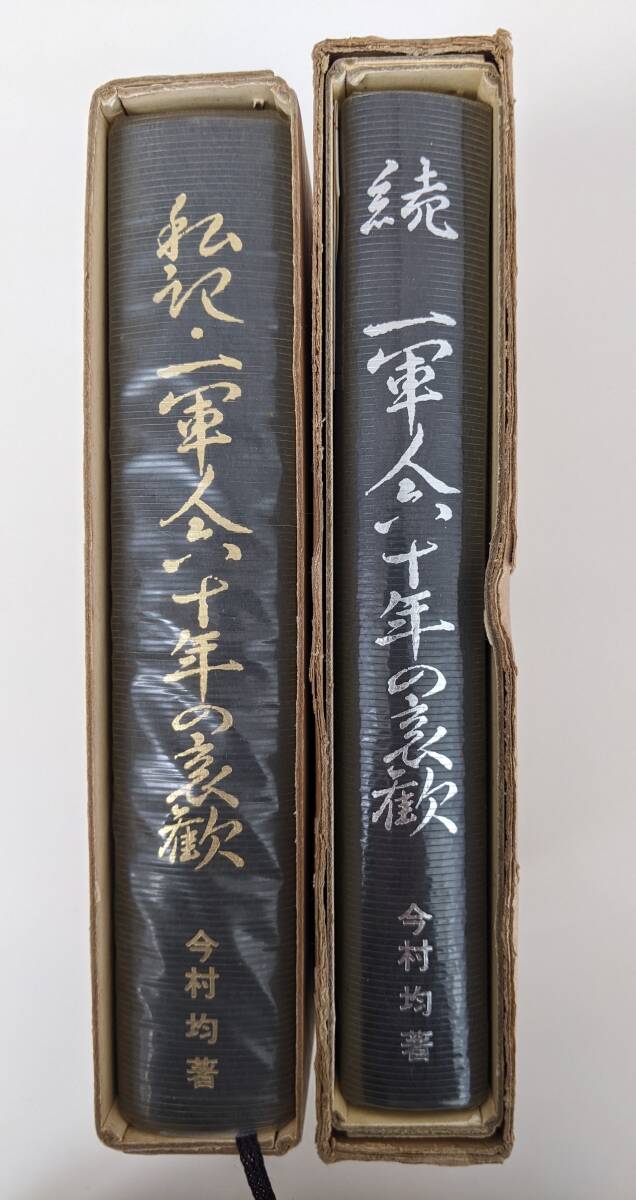 私記・一軍人六十年の哀歓
今村均著
続 一軍人六十年の哀歓
今村均著